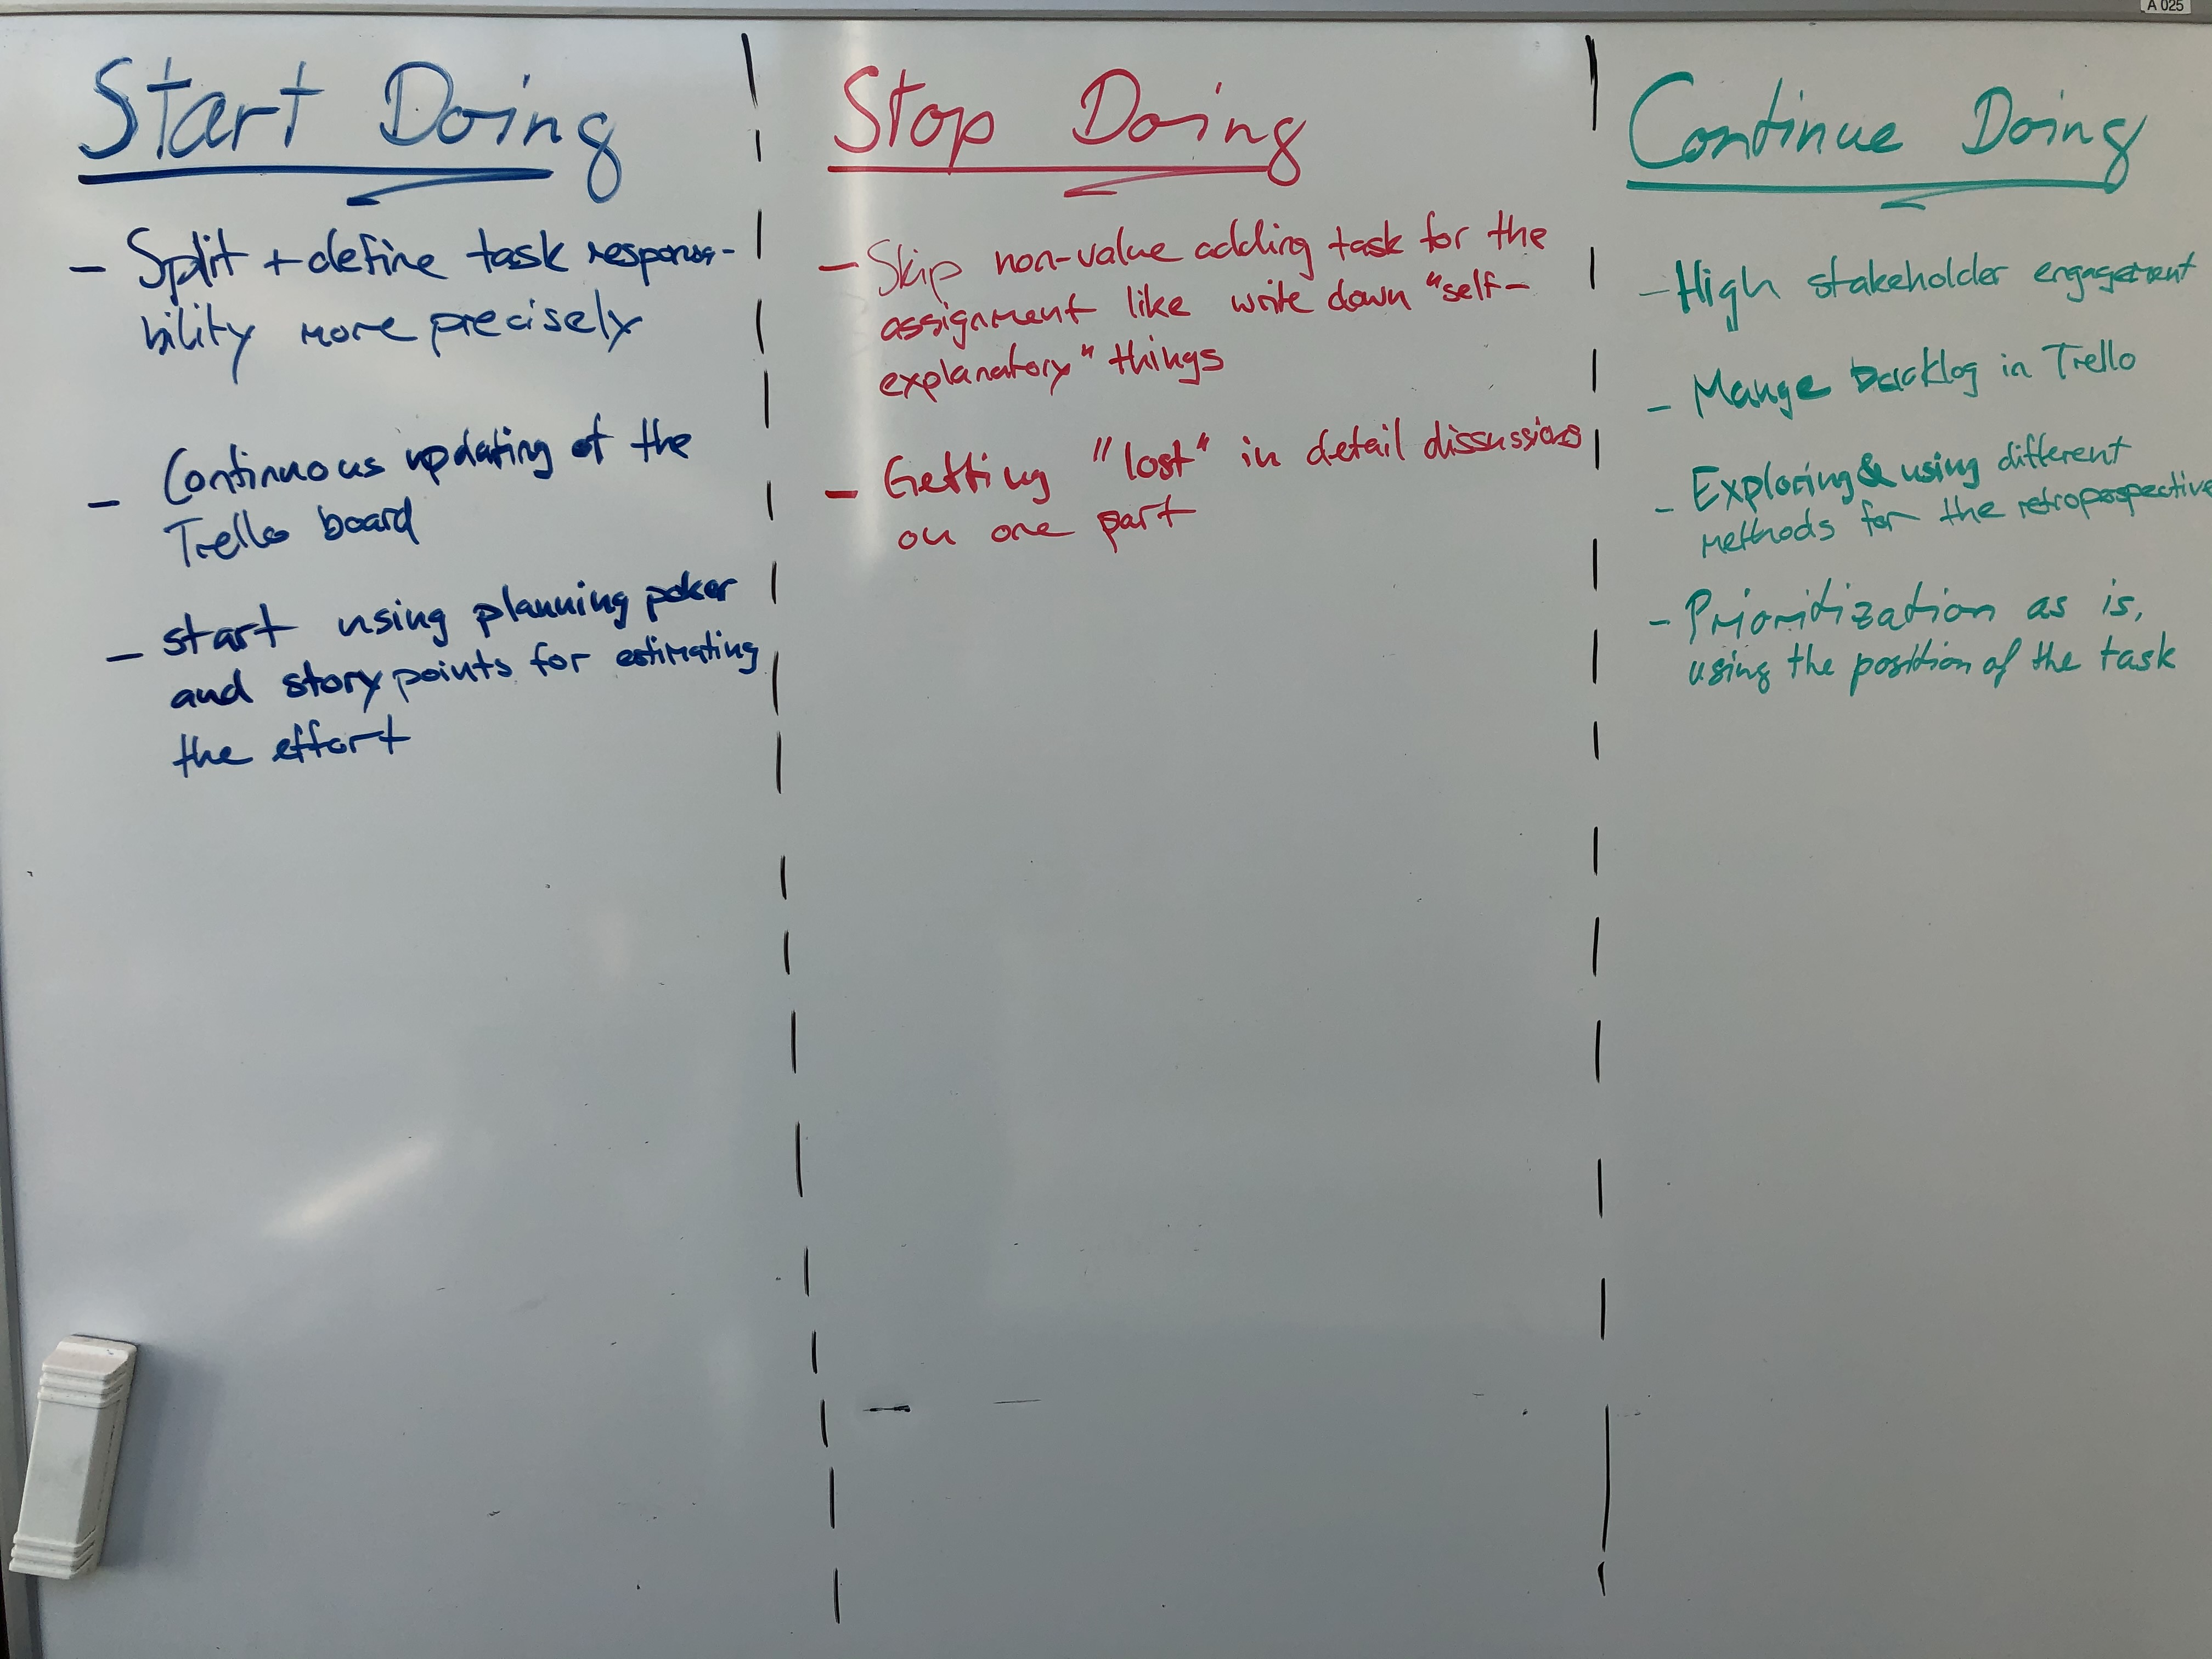 A 025
Start Doing
- Split + define task responsi-
bility more precisely
- Continuous updating of the
Trello board
- start using planning poker
and story points for estimating
the effort
Stop Doing
- Skip non-value adding task for the
assignment like write down "self-
explanatory" things
- Getting "lost" in detail dissussions
on one part
Continue Doing
- High stakeholder engagement
- Mange backlog in Trello
- Exploring & using different
methods for the retropospective
- Prioritization as is,
using the position of the task